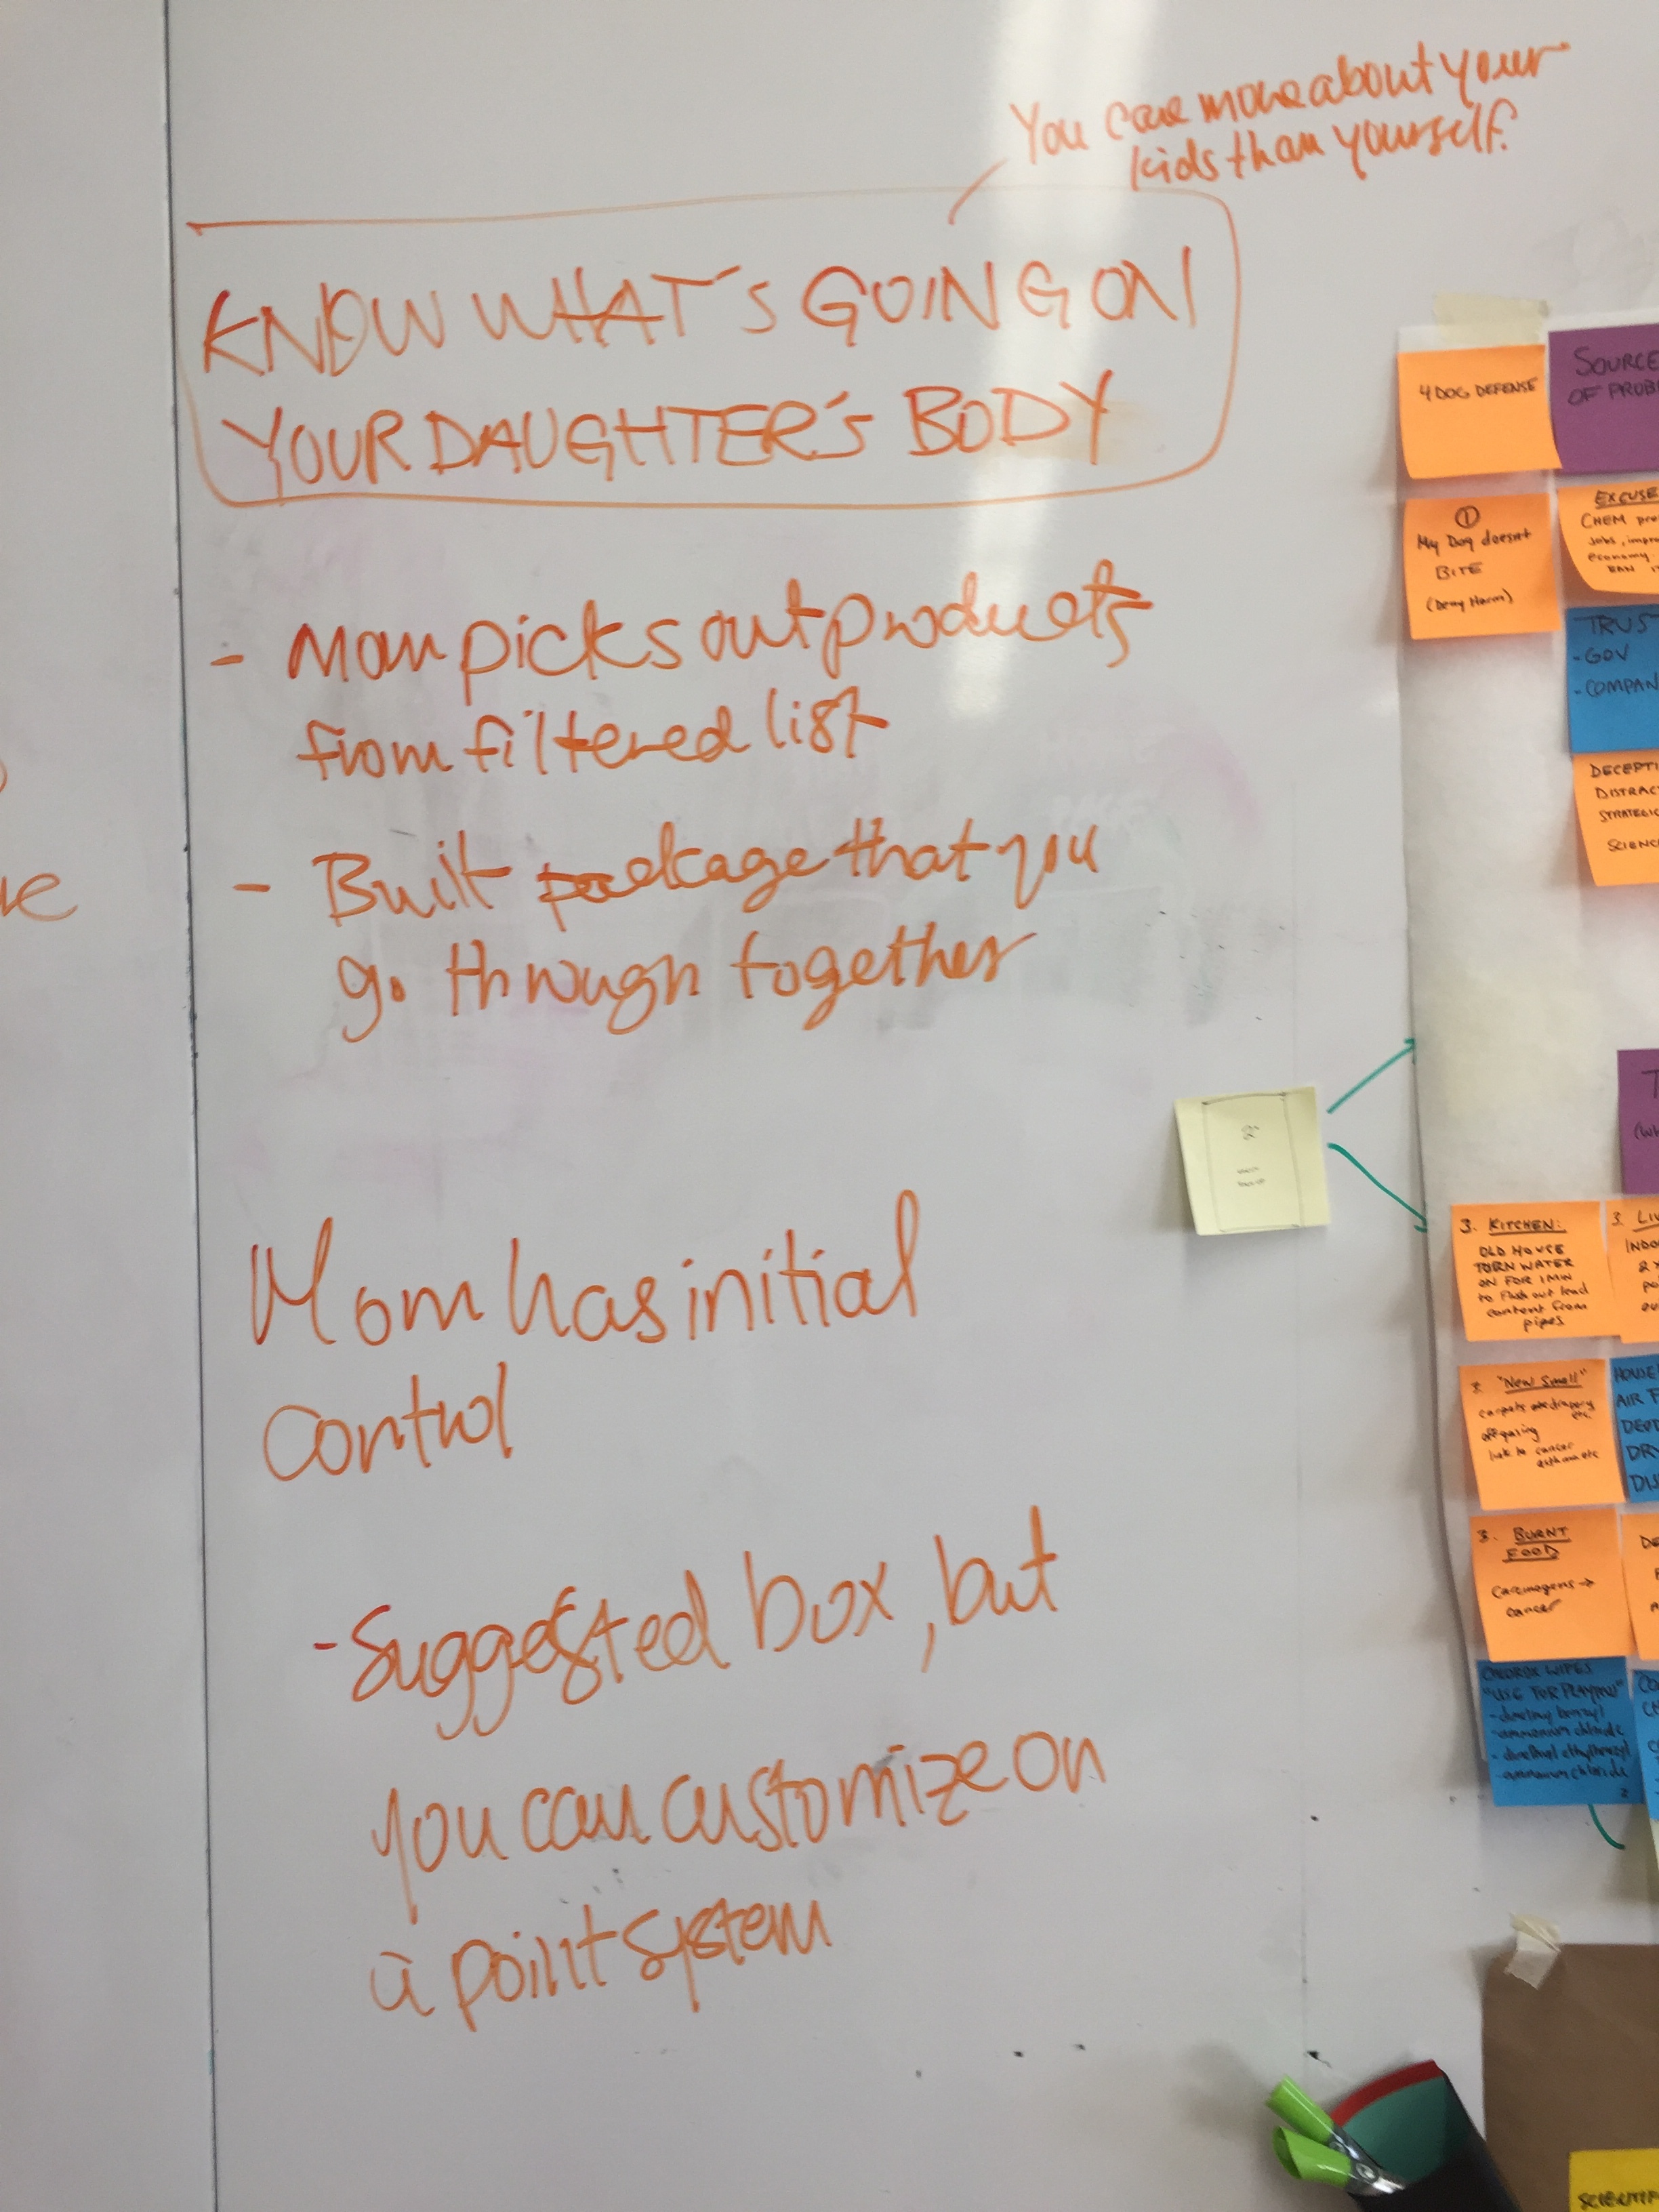 You care more about your
kids than yourself.
KNOW WHAT'S GOING ON
YOUR DAUGHTER'S BODY
- Mom picks out products
from filtered list
- Built package that you
go through together
Mom has initial
control
- Suggested box, but
you can customize on
a point system
4 DOG DEFENSE
SOURCE
OF PROB
1
My Dog doesnt
BITE
(Deny Harm)
EXCUSE
CHEM pro
jobs, impro
economy.
BAN
TRUST
- GOV
- COMPAN
DECEPTI
DISTRAC
STRATEGIC
SCIENC
T
(Wh
3. KITCHEN:
OLD HOUSE
TURN WATER
ON FOR 1 MIN
to flush out lead
content from
pipes
3. LIV
INDO
2 x
po
ou
3. "New Smell"
carpets drapery
etc.
offgasing
link to cancer
asthma etc
HOUSE
AIR F
DEOD
DRY
DIS
3. BURNT
FOOD
Carcinogens →
cancer
DE
CHLOROX WIPES
"USE FOR PLAYPENS"
- dimethyl benzyl
- ammonium chloride
- dimethyl ethylbenzyl
- ammonium chloride
2
CO
SCIENTIF